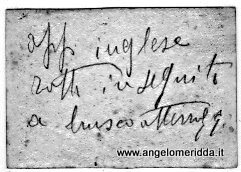 app inglese
rotti in seguito
a brusco atterragg.
www.angelomeridda.it